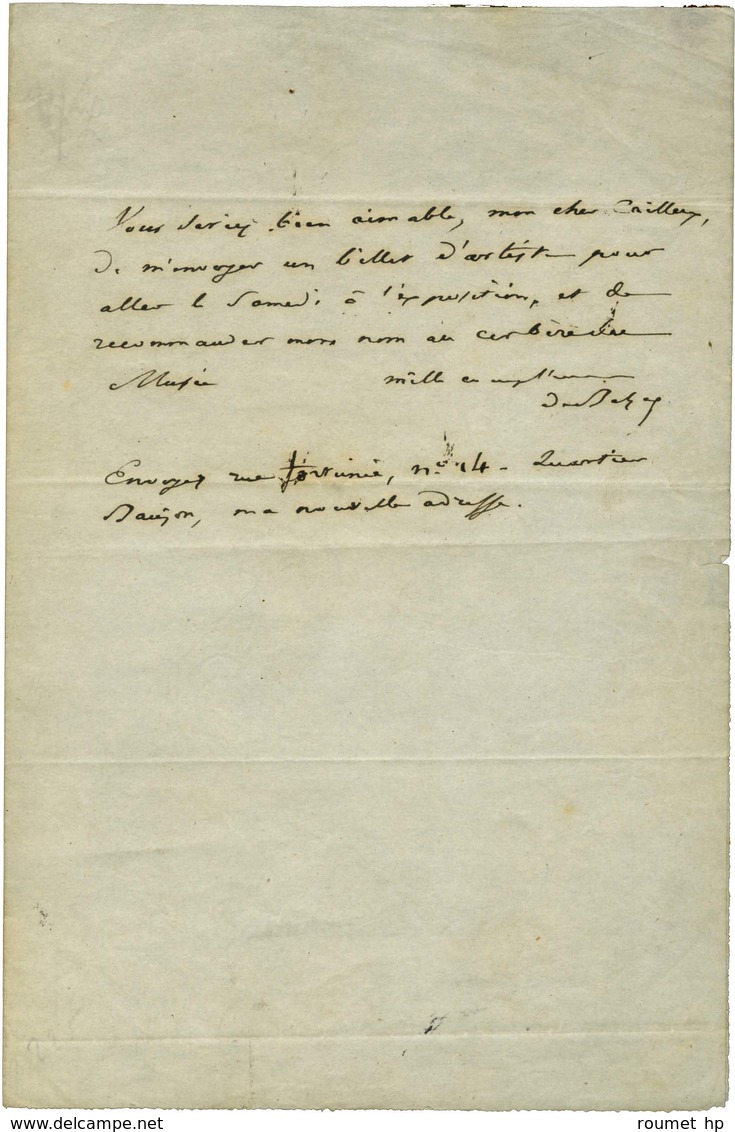 Vous seriez bien aimable, mon cher Cailleux,
de m'envoyer un billet d'artiste pour
aller le Samedi à l'exposition, et de
recommander mon nom au cerbère du
Musée mille complimens
de Balzac
Envoyez rue fortunée, n° 14 - Quartier
Baujon, ma nouvelle adresse.
roumet hp
delcampe.net